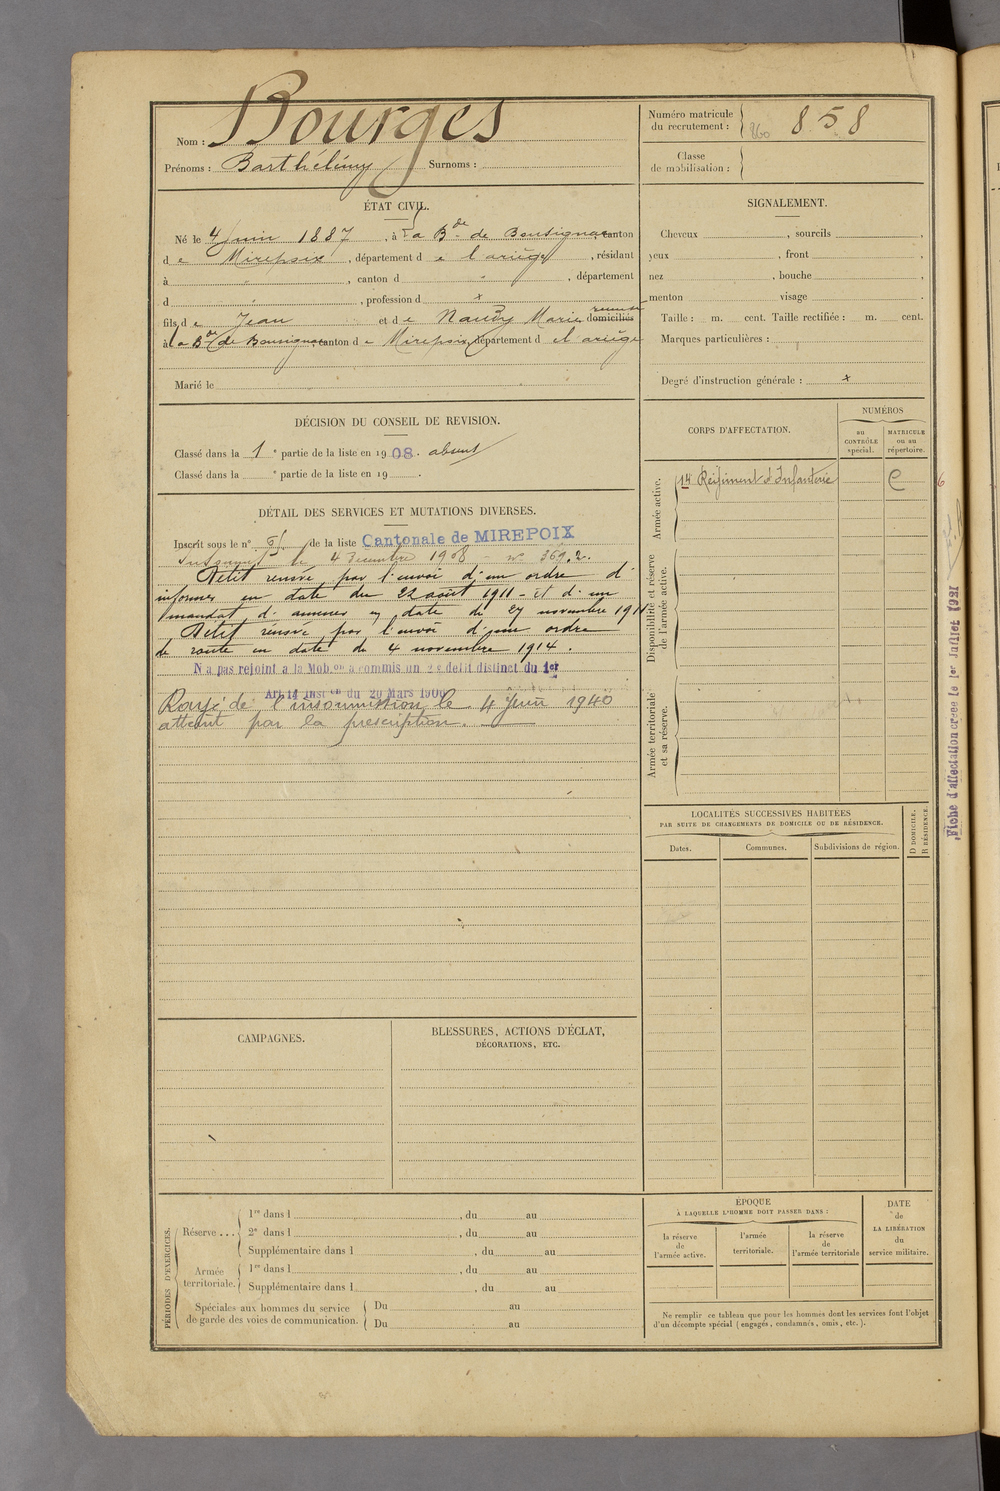 Nom : Bourges
Prénoms : Barthélémy Surnoms :
Numéro matricule
du recrutement : 860 858
Classe
de mobilisation :
ÉTAT CIVIL.
Né le 4 Juin 1887, à La Bde de Bousignac, canton
de Mirepoix, département de l'ariège, résidant
à " , canton d " , département
d " , profession d x
fils de Jean et de Naudy Marie domiciliés
à la Bde de Bousignac canton de Mirepoix, département d el ariège
Marié le
SIGNALEMENT.
Cheveux , sourcils ,
yeux , front ,
nez , bouche ,
menton visage
Taille : m. cent. Taille rectifiée : m. cent.
Marques particulières :
Degré d'instruction générale : x
DÉCISION DU CONSEIL DE REVISION.
Classé dans la 1 e partie de la liste en 1908. absent
Classé dans la e partie de la liste en 19 .
DÉTAIL DES SERVICES ET MUTATIONS DIVERSES.
Inscrit sous le n° de la liste Cantonale de MIREPOIX
Insoumis le 4 Décembre 1908 - n° 369.2.
Délit rensvé par l'envoi d'un ordre d'
informer en date du 22 août 1911 - et d'un
mandat d'amener en date du 27 novembre 1911
Délit rensvé par l'envoi d'un ordre
de route en date du 4 novembre 1914.
N'a pas rejoint a la Mobon a commis un 2e delit distinct du 1er
Art 14 Inston du 20 Mars 1906
Rayé de l'insoumission le 4 Juin 1940
atteint par la prescription.
CORPS D'AFFECTATION.
NUMÉROS
au
CONTRÔLE
spécial.
MATRICULE
ou au
répertoire.
Armée active.
14e Régiment d'Infanterie
Disponibilité et réserve
de l'armée active.
Armée territoriale
et sa réserve.
Fiche d'affectation créée le 1er Juillet 1921
LOCALITÉS SUCCESSIVES HABITÉES
PAR SUITE DE CHANGEMENTS DE DOMICILE OU DE RÉSIDENCE.
Dates.
Communes.
Subdivisions de région.
D DOMICILE.
R RÉSIDENCE.
CAMPAGNES.
BLESSURES, ACTIONS D'ÉCLAT,
DÉCORATIONS, ETC.
PÉRIODES D'EXERCICES.
Réserve ...
1re dans l , du au
2e dans l , du au
Supplémentaire dans l , du au
Armée
territoriale.
1re dans l , du au
Supplémentaire dans l , du au
Spéciales aux hommes du service
de garde des voies de communication.
Du au
Du au
ÉPOQUE
À LAQUELLE L'HOMME DOIT PASSER DANS :
la réserve
de
l'armée active.
l'armée
territoriale.
la réserve
de
l'armée territoriale
DATE
de
LA LIBÉRATION
du
service militaire.
Ne remplir ce tableau que pour les hommes dont les services font l'objet
d'un décompte spécial (engagés, condamnés, omis, etc.).